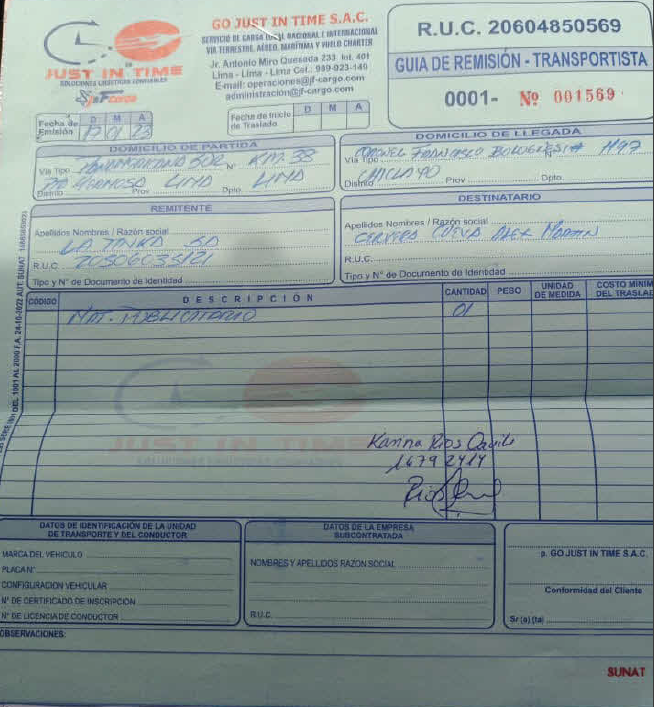 GO JUST IN TIME S.A.C.
SERVICIO DE CARGA LOCAL NACIONAL E INTERNACIONAL
VIA TERRESTRE, AÉREO, MARÍTIMA Y VUELO CHARTER
Jr. Antonio Miro Quesada 233 Int. 401
Lima - Lima - Lima Cel.: 989-023-140
E-mail: operaciones@jf-cargo.com
administración@jf-cargo.com
JUST IN TIME
R.U.C. 20604850569
GUIA DE REMISIÓN - TRANSPORTISTA
0001- Nº 001569
Fecha de Emisión D M A
12 01 23
Fecha de Inicio de Traslado D M A
DOMICILIO DE PARTIDA
Vía Tipo Panamericana Sur N° KM. 38
Distrito Prov. Lima Dpto. Lima
DOMICILIO DE LLEGADA
Vía Tipo Coronel Francisco Bolognesi
Distrito Chiclayo Prov. Dpto.
REMITENTE
Apellidos Nombres / Razón social
LA TINKA SA
R.U.C. 20506035121
Tipo y N° de Documento de Identidad
DESTINATARIO
Apellidos Nombres / Razón social
Cueva Alex Martin
R.U.C.
Tipo y N° de Documento de Identidad
CÓDIGO DESCRIPCIÓN CANTIDAD PESO UNIDAD DE MEDIDA COSTO MINIM DEL TRASLAD
Mat. Publicitario 01
JUST IN TIME
Karina Rios
16792414
DATOS DE IDENTIFICACIÓN DE LA UNIDAD
DE TRANSPORTE Y DEL CONDUCTOR
MARCA DEL VEHICULO
PLACA N°
CONFIGURACIÓN VEHICULAR
N° DE CERTIFICADO DE INSCRIPCION
N° DE LICENCIA DE CONDUCTOR
DATOS DE LA EMPRESA
SUBCONTRATADA
NOMBRES Y APELLIDOS RAZON SOCIAL
R.U.C.
p. GO JUST IN TIME S.A.C.
Conformidad del Cliente
Sr (a) (ta)
OBSERVACIONES:
SUNAT